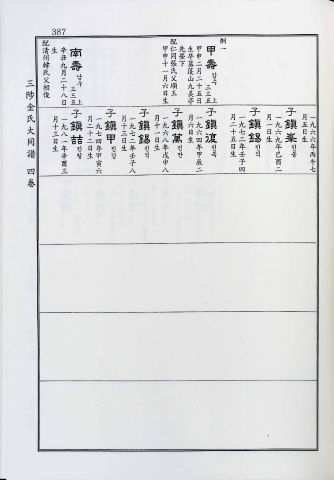 387
網一
甲壽 갑수 三三五上
甲申二月二十五日
生卒墓蓬山九美亭
先塋下
配仁同張氏父順玉
甲申十一月六日生
南壽 남수 三三五上
辛丑九月二十八日
生
配清州韓氏父相俊
月五日生
一九六六年丙午七
子鎭峯 진봉
一九六九年己酉二
月一日生
子鎭錫 진석
一九七二年壬子四
月二十五日生
一九六四年甲辰二
月六日生
子鎭萬 진만
一九六八年戊申八
月十六日生
子鎭錫 진석
一九七二年壬子八
月十三日生
子鎭甲 진갑
一九七四年甲寅六
月二十二日生
子鎭喆 진철
一九八一年辛酉三
月十三日生
三陟金氏大同譜 四卷